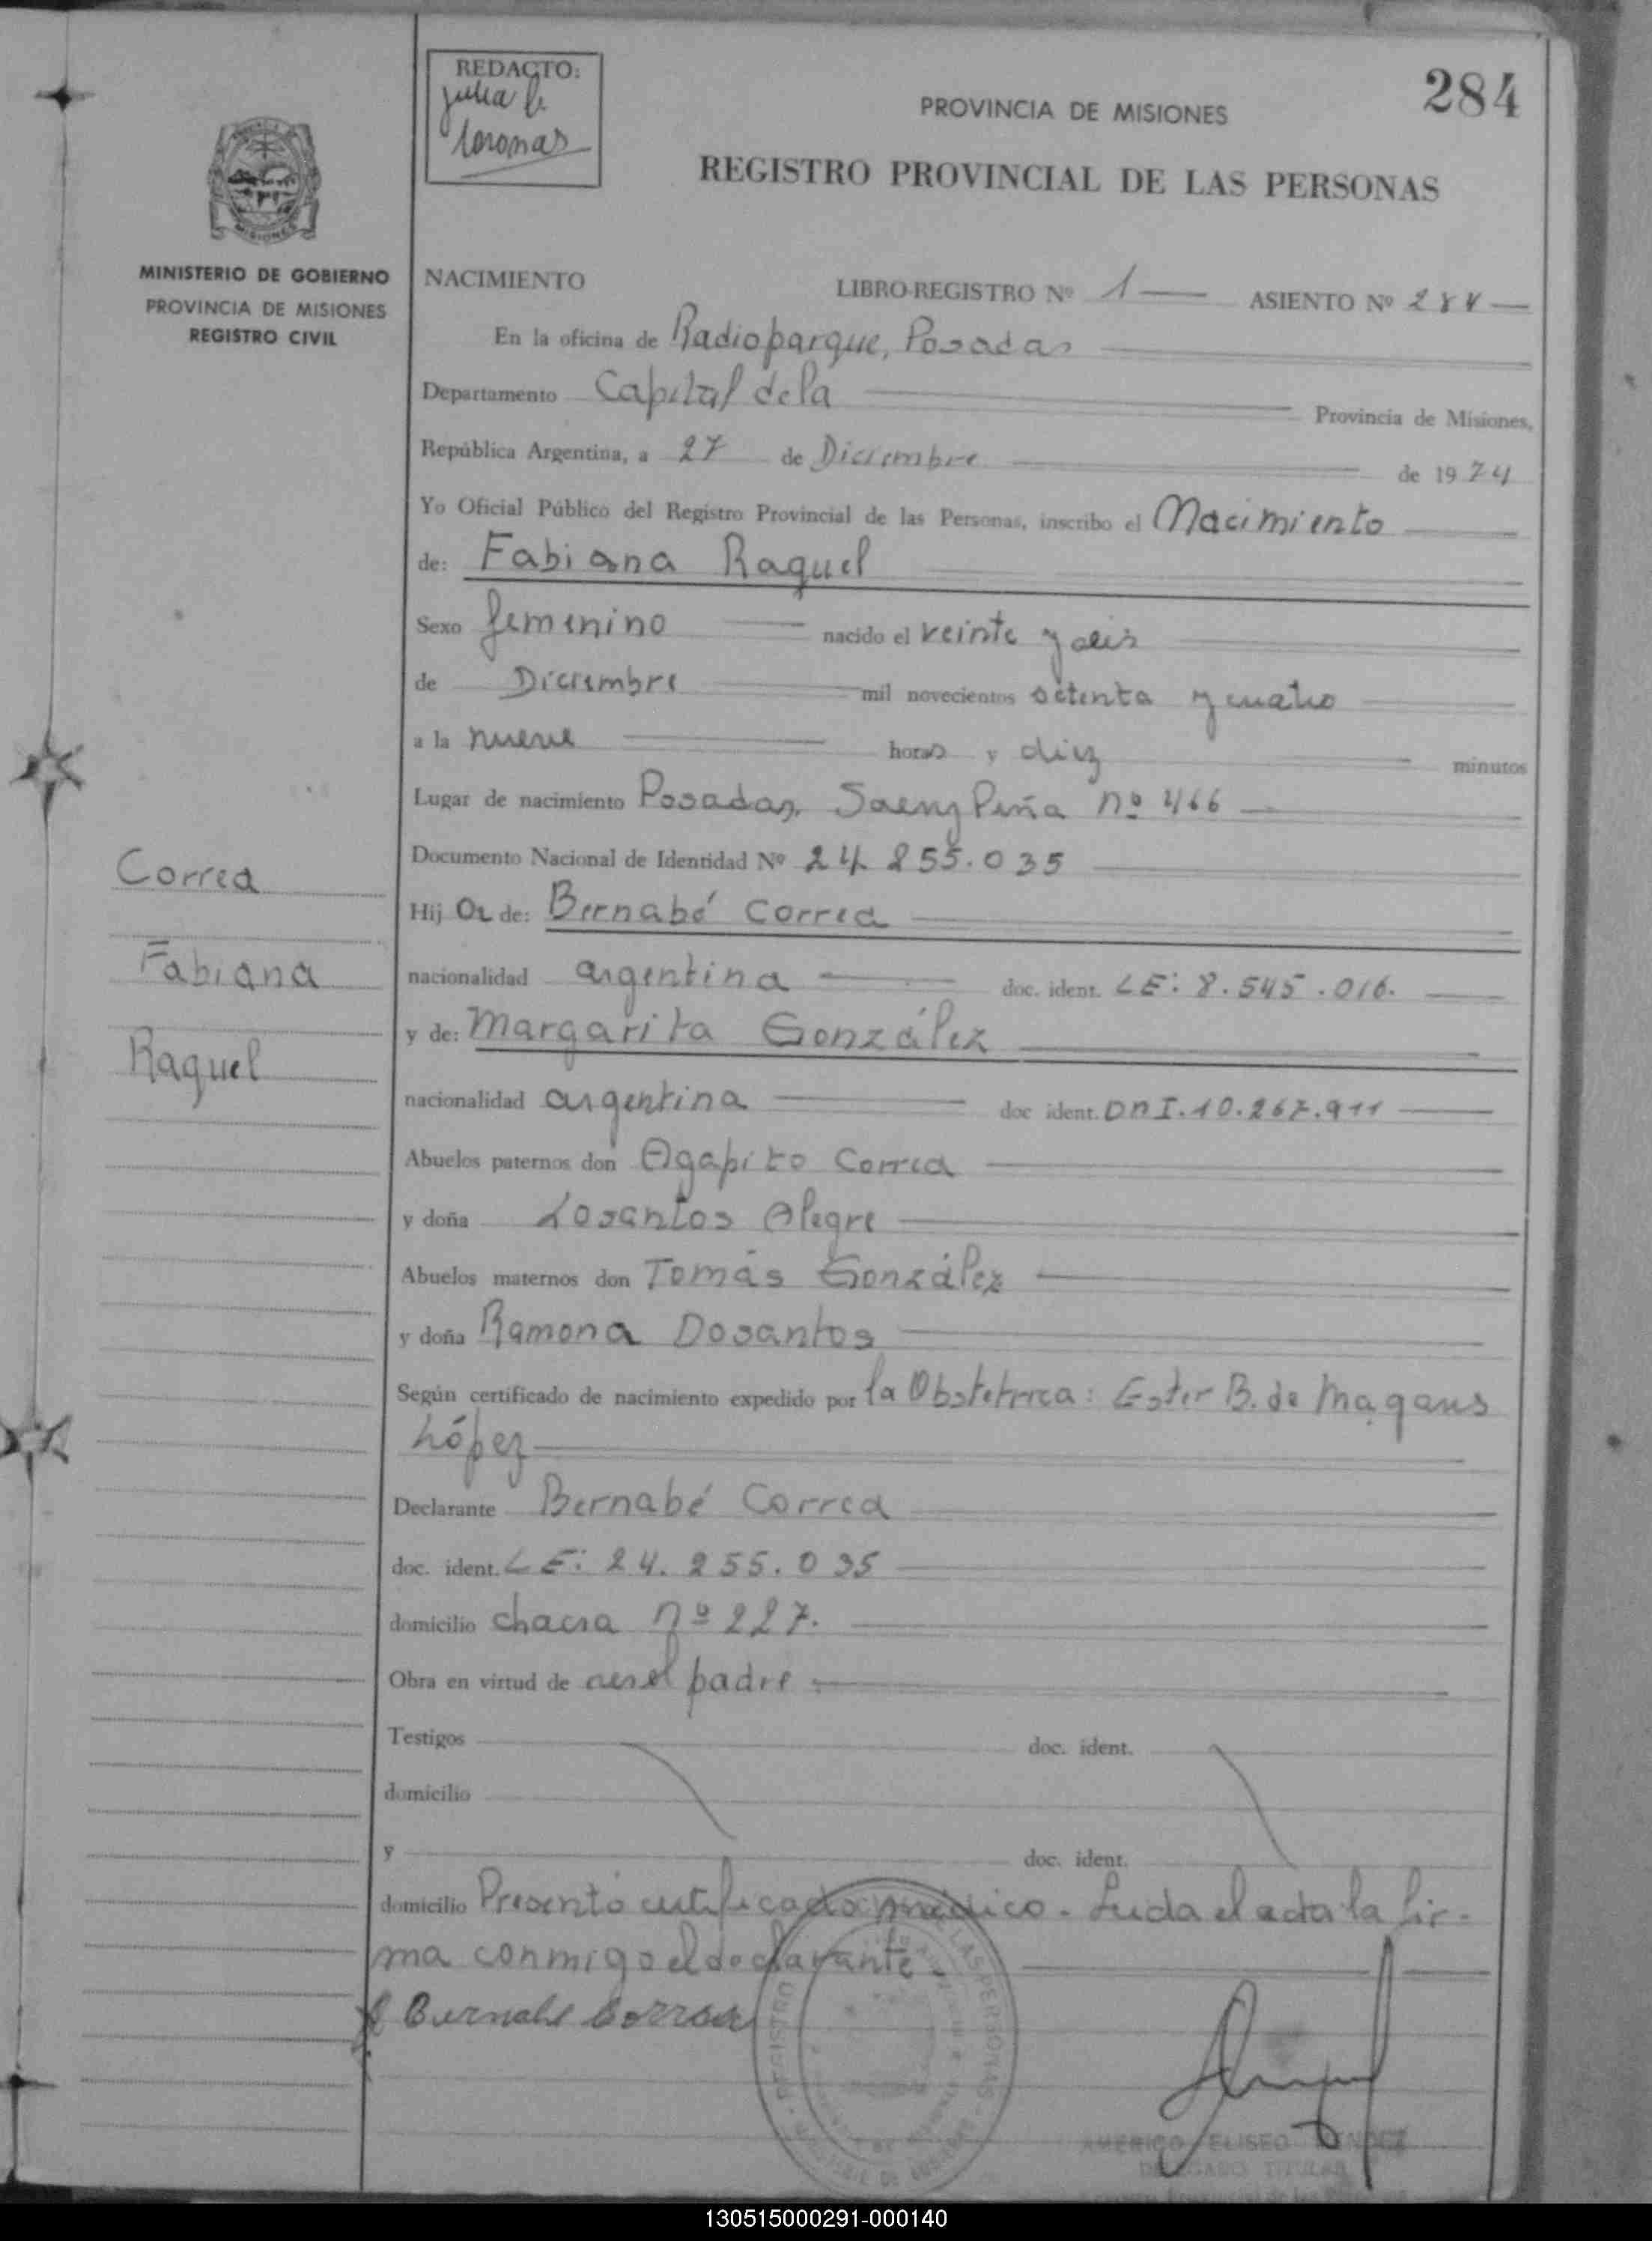 REDACTO:
Julia R
Coronas
284
PROVINCIA DE MISIONES
REGISTRO PROVINCIAL DE LAS PERSONAS
MISIONES
MINISTERIO DE GOBIERNO
PROVINCIA DE MISIONES
REGISTRO CIVIL
NACIMIENTO LIBRO-REGISTRO Nº 1 ASIENTO Nº 284
En la oficina de Radioparque, Posadas
Departamento Capital dela Provincia de Misiones,
República Argentina, a 27 de Diciembre de 1974
Yo Oficial Público del Registro Provincial de las Personas, inscribo el Nacimiento
de: Fabiana Raquel
Sexo femenino nacido el veinte y seis
de Diciembre mil novecientos setenta y cuatro
a la nueve horas y diez minutos
Lugar de nacimiento Posadas, Saenz Peña nº 466
Documento Nacional de Identidad Nº 24.255.035
Hij a de: Bernabé Correa
nacionalidad argentina doc. ident. LE: 8.545.016.
y de: Margarita González
nacionalidad argentina doc ident. DNI. 10.267.911
Abuelos paternos don Agapito Correa
y doña Losantos Alegre
Abuelos maternos don Tomás González
y doña Ramona Dosantos
Según certificado de nacimiento expedido por la Obstetrica: Ester B. de Magans
López
Declarante Bernabé Correa
doc. ident. LE: 24.255.035
domicilio chacra nº 227.
Obra en virtud de ser el padre
Testigos doc. ident.
domicilio
y doc. ident.
domicilio Presentó certificado médico. Leida el acta la fir-
ma conmigo el declarante.
Bernabe Correa
Correa
Fabiana
Raquel
AMERICO ELISEO MENDEZ
DELEGADO TITULAR
130515000291-000140